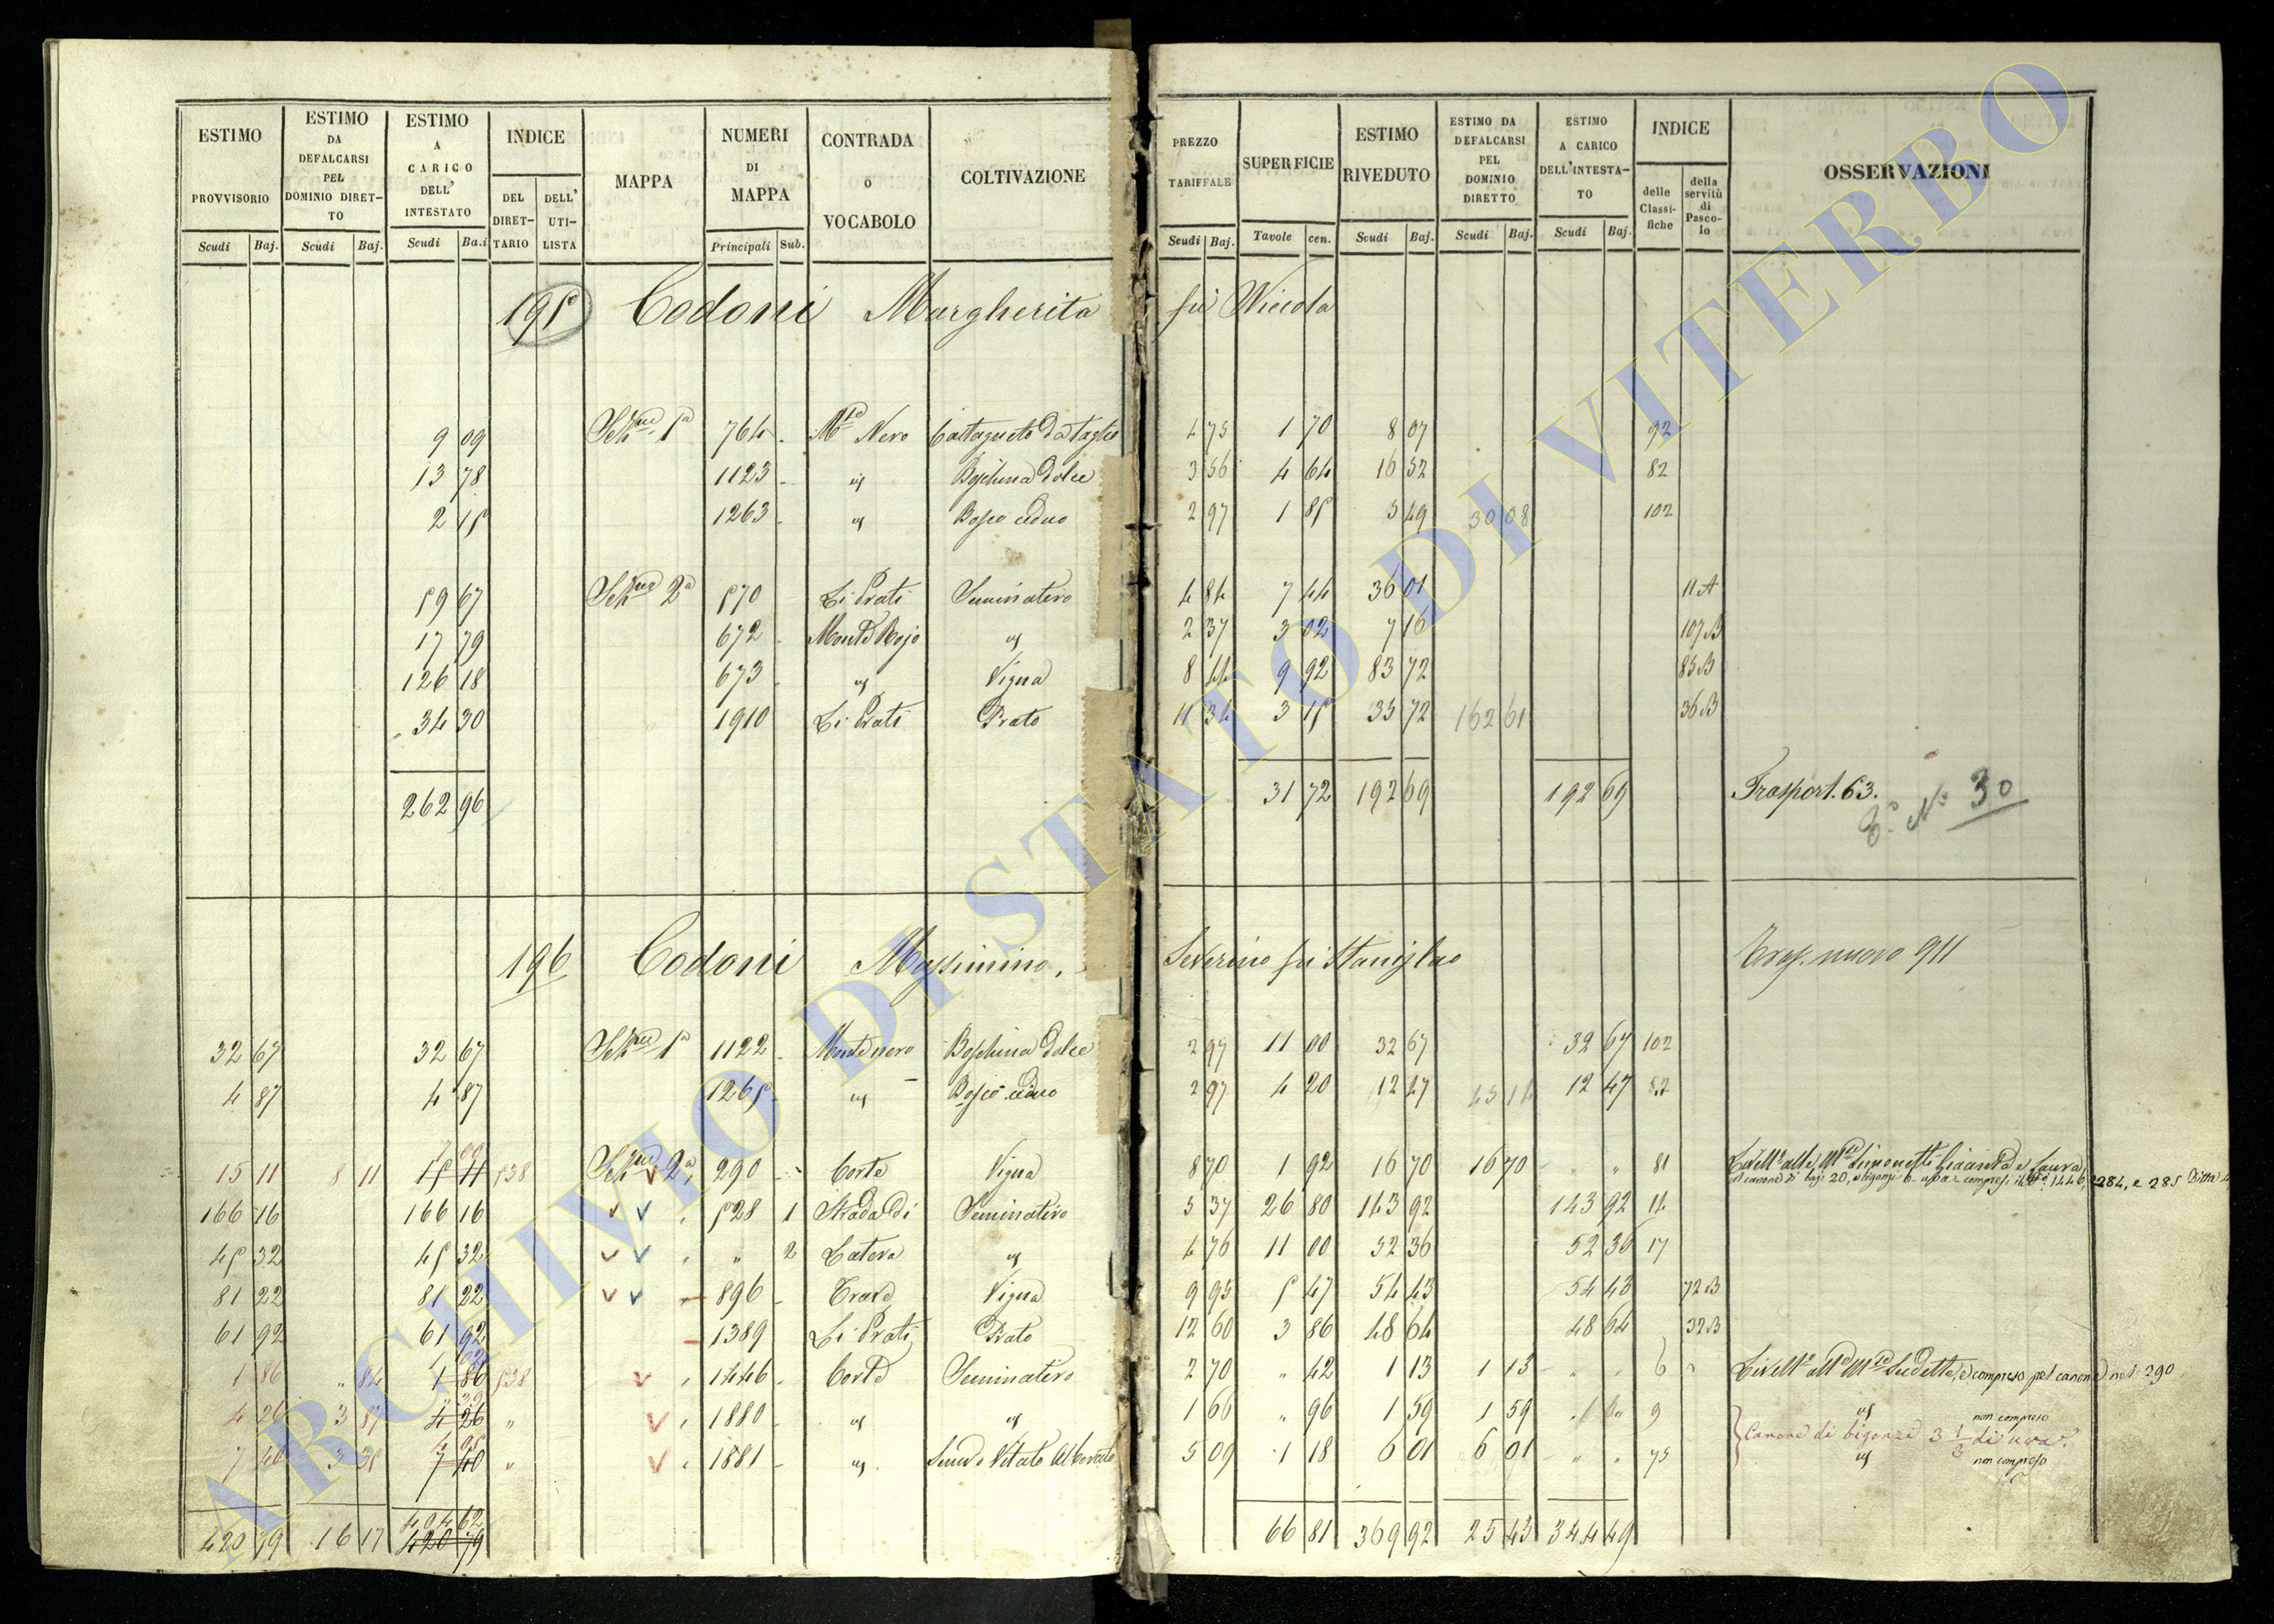 ESTIMO PROVVISORIO Scudi Baj. ESTIMO DA DEFALCARSI PEL DOMINIO DIRET-TO Scudi Baj. ESTIMO A CARICO DELL' INTESTATO Scudi Ba.i INDICE DEL DIRET-TARIO DELL' UTI-LISTA MAPPA NUMERI DI MAPPA Principali Sub. CONTRADA O VOCABOLO COLTIVAZIONE
PREZZO TARIFFALE Scudi Baj. SUPERFICIE Tavole cen. ESTIMO RIVEDUTO Scudi Baj. ESTIMO DA DEFALCARSI PEL DOMINIO DIRETTO Scudi Baj. ESTIMO A CARICO DELL'INTESTA-TO Scudi Baj. INDICE delle Classi-fiche della servitù di Pasco-lo OSSERVAZIONI
195 Codoni Margherita fu Niccola
9 09 1a 764 Mte Nero Castagneto da Taglio 4 75 1 70 8 07 92
13 78 1123 Boschina dolce 3 56 4 64 16 52 82
2 15 1263 Bosco ceduo 2 97 1 85 5 49 30 08 102
59 67 2a 570 Li Prati Seminativo 4 84 7 44 36 01 11 A
17 79 672 Monte Rojo 2 37 3 02 7 16 107 B
126 18 673 Vigna 8 44 9 92 83 72 85 B
34 30 1910 Li Prati Prato 11 34 3 15 35 72 162 61 36 B
262 96 31 72 192 69 192 69 Trasport. 63.
N: 30
196 Codoni Massimino, Severino fu Stanislao Trasp. nuovo 911
32 67 32 67 1a 1122 Monte nero Boschina dolce 2 97 11 00 32 67 32 67 102
4 87 4 87 1265 Bosco ceduo 2 97 4 20 12 47 45 14 12 47 82
15 11 8 11 7 00 15 11 538 2a 290 Corte Vigna 8 70 1 92 16 70 16 70 " " 81
166 16 166 16 528 1 Strada di Seminativo 5 37 26 80 143 92 143 92 14
45 32 45 32 " 2 Latera 4 76 11 00 52 36 52 36 17
81 22 81 22 896 Vigna 9 95 5 47 54 43 54 43 72 B
61 92 61 92 1389 Li Prati Prato 12 60 3 86 48 64 48 64 32 B
1 86 " 84 1 02 1 86 538 1446 Corte Seminativo 2 70 " 42 1 13 1 13 6 compreso pel canone nel 290
4 26 3 87 " 39 4 26 " 1880 1 66 " 96 1 59 1 59 9 non compreso
Canone di bigonze 3 1/3 di uva.
7 40 3 35 4 05 7 40 " 1881 5 09 1 18 6 01 6 01 " " 75 non compreso
420 79 16 17 404 62 420 79 66 81 369 92 25 43 344 49
ARCHIVIO DI STATO DI VITERBO